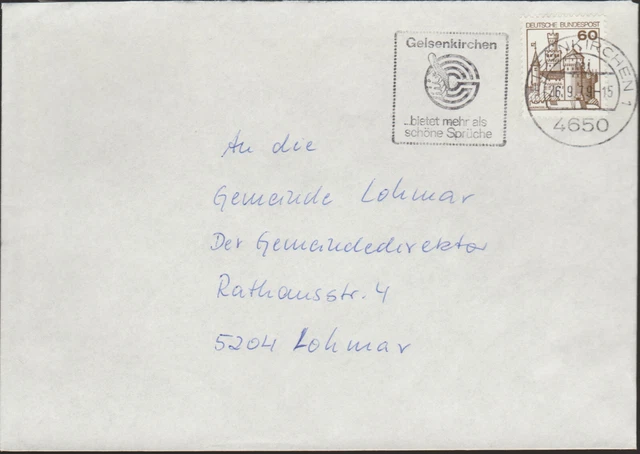 Gelsenkirchen
...bietet mehr als
schöne Sprüche
DEUTSCHE BUNDESPOST
60
4650
An die
Gemeinde Lohmar
Der Gemeindedirektor
Rathausstr. 4
5204 Lohmar